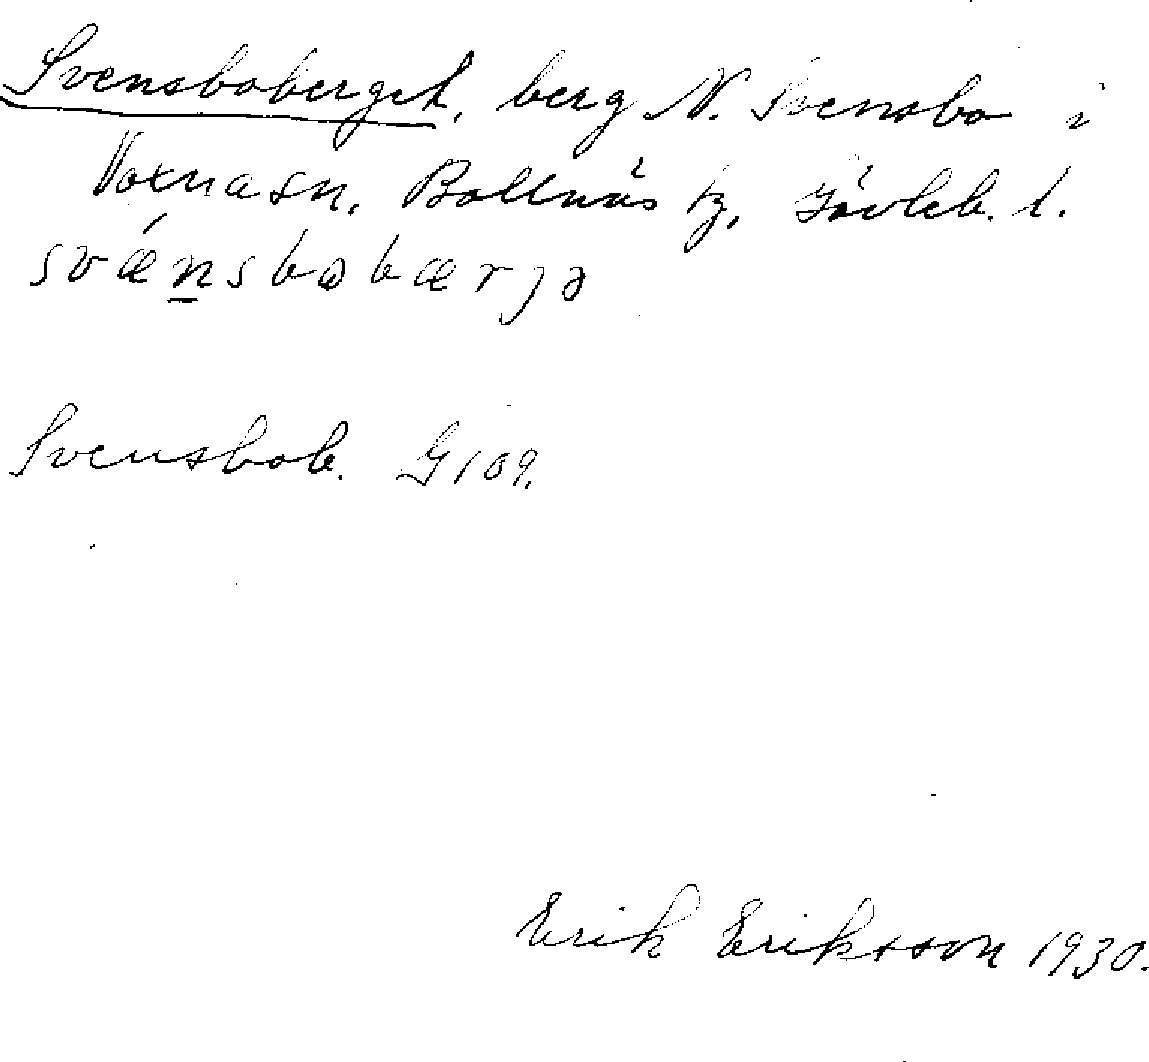 Svensboberget, berg N. Svensbo i
Voxna sn, Bollnäs tg, Gävleb. l.
svǽn̲sbobærjə
Svensbob. G109.
Erik Eriksson 1930.